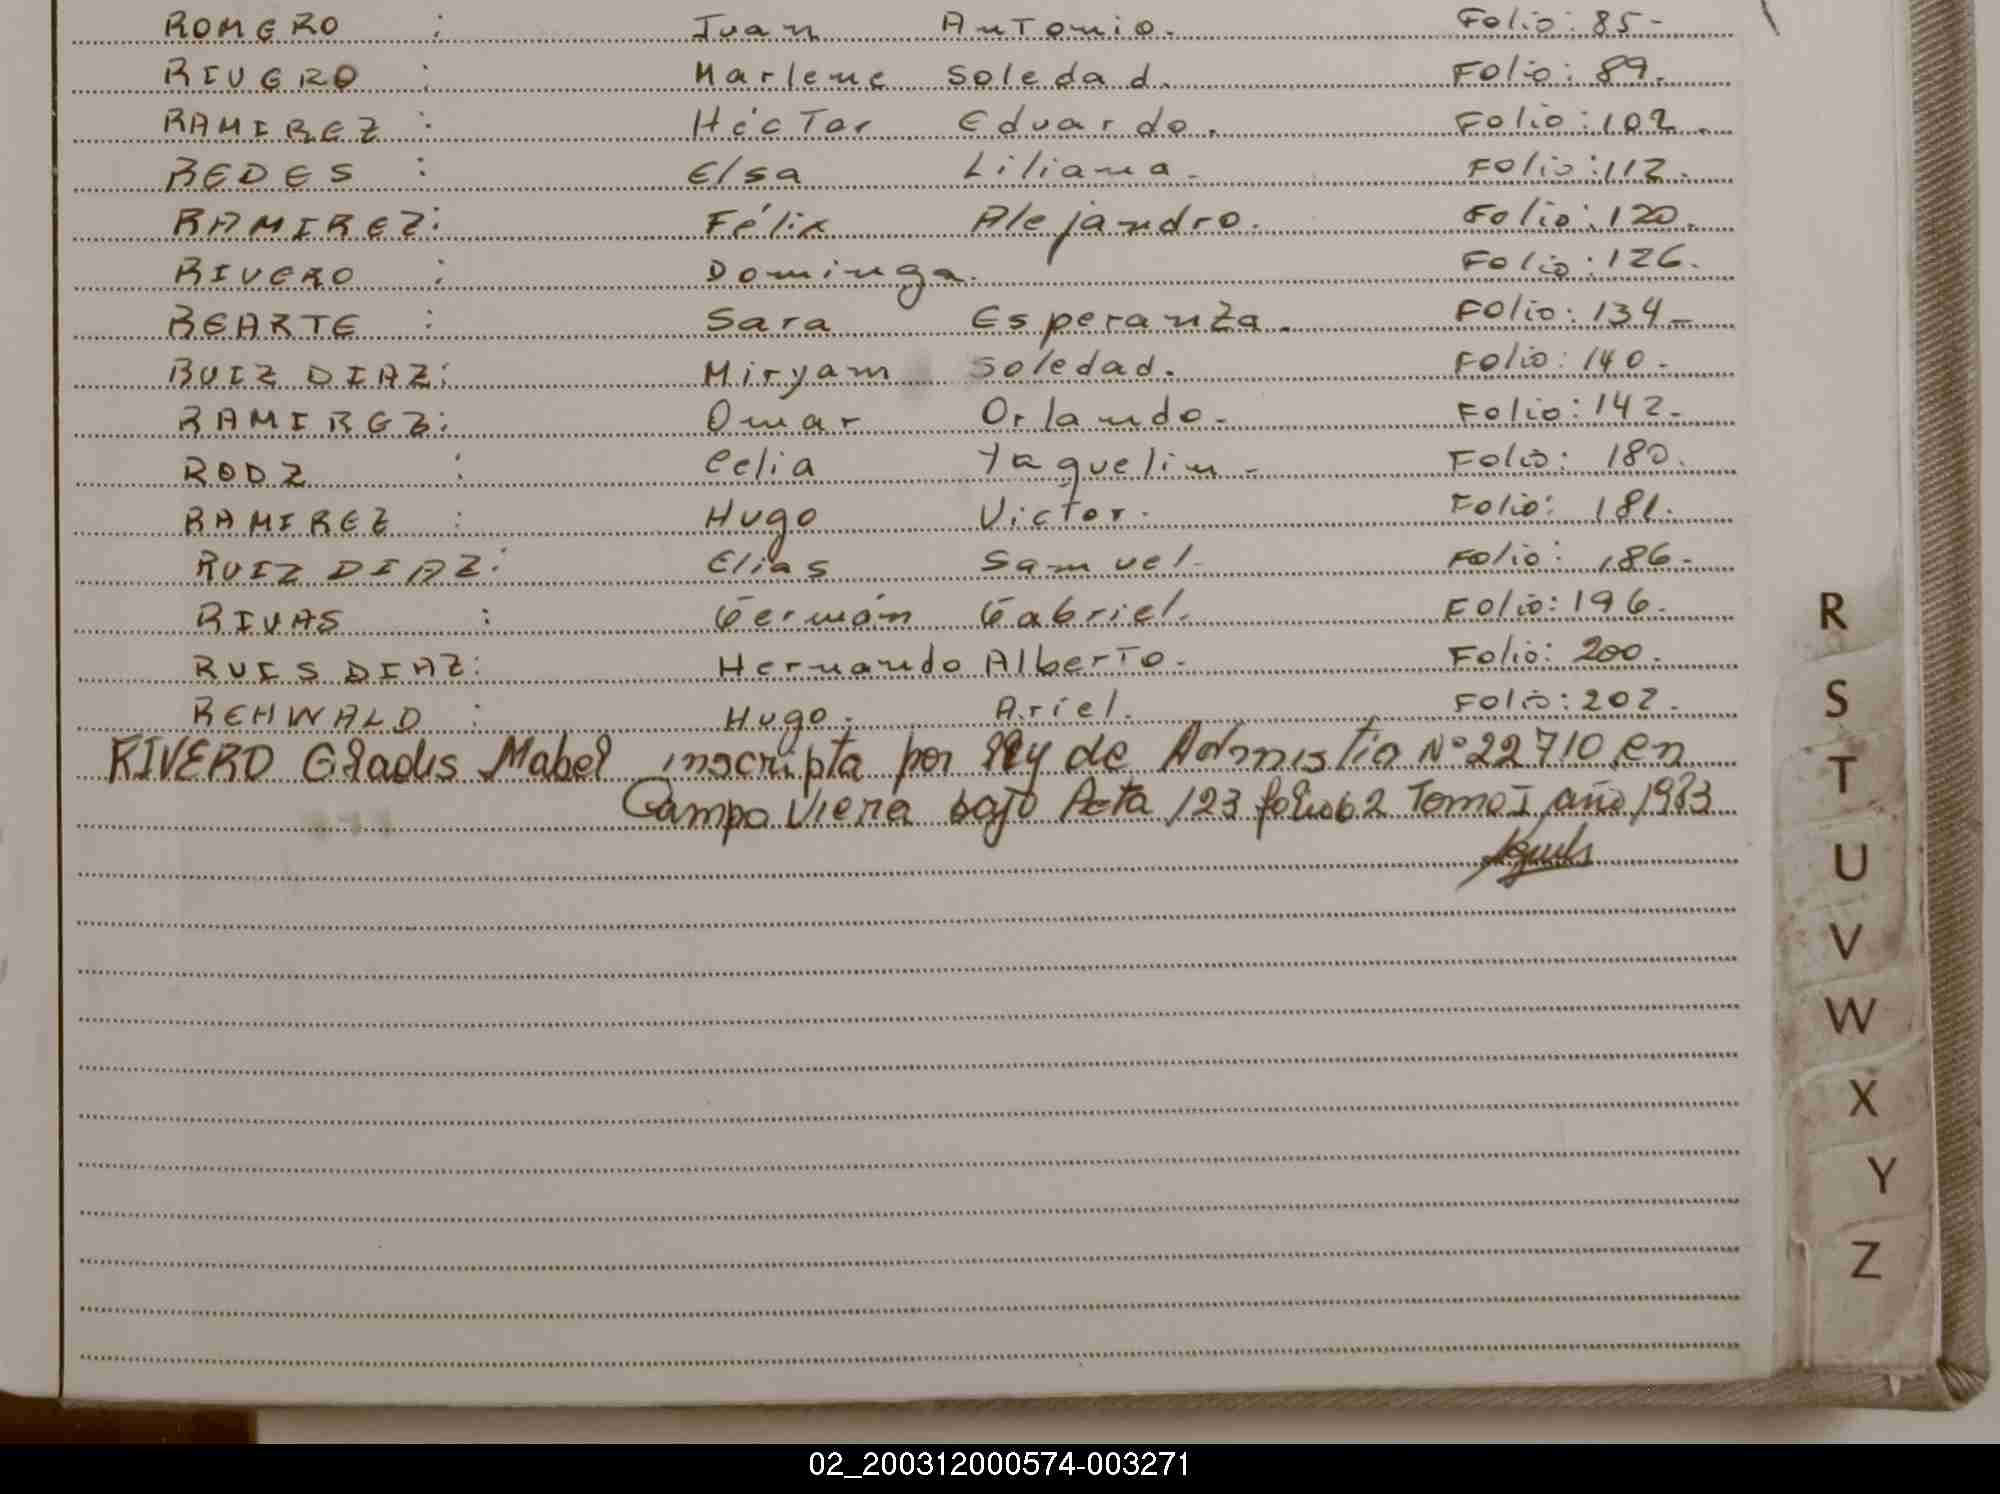 ROMERO : Juan Antonio. Folio: 85-
RIVERO : Marlene Soledad. Folio: 89.
RAMIREZ : Héctor Eduardo. Folio: 102.
REDES : Elsa Liliana. Folio: 112.
RAMIREZ: Félix Alejandro. Folio: 120.
RIVERO : Dominga. Folio: 126.
REARTE : Sara Esperanza. Folio: 134-
RUIZ DIAZ: Miryam Soledad. Folio: 140.
RAMIREZ: Omar Orlando. Folio: 142.
RODZ : Celia Yaquelin. Folio: 180.
RAMIREZ : Hugo Victor. Folio: 181.
RUIZ DIAZ: Elias Samuel. Folio: 186.
RIVAS : Germán Gabriel. Folio: 196.
RUIS DIAZ: Hernando Alberto. Folio: 200.
REHWALD : Hugo. Ariel. Folio: 202.
RIVERO Gladis Mabel inscripta por ley de Admistia Nº 22710 en
Campo Viera bajo Acta 123 folio 62 Tomo I año 1983
R
S
T
U
V
W
X
Y
Z
02_200312000574-003271